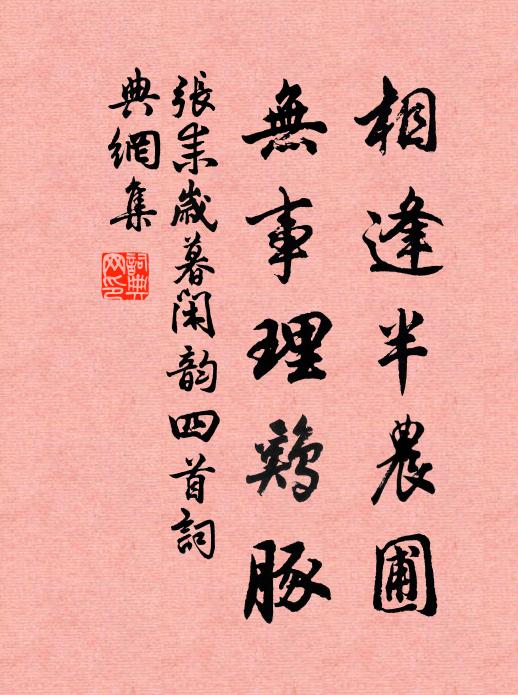 相逢半農圃
無事理鷄豚
張耒歲暮閑韵四首詞
典網集
詞典网印